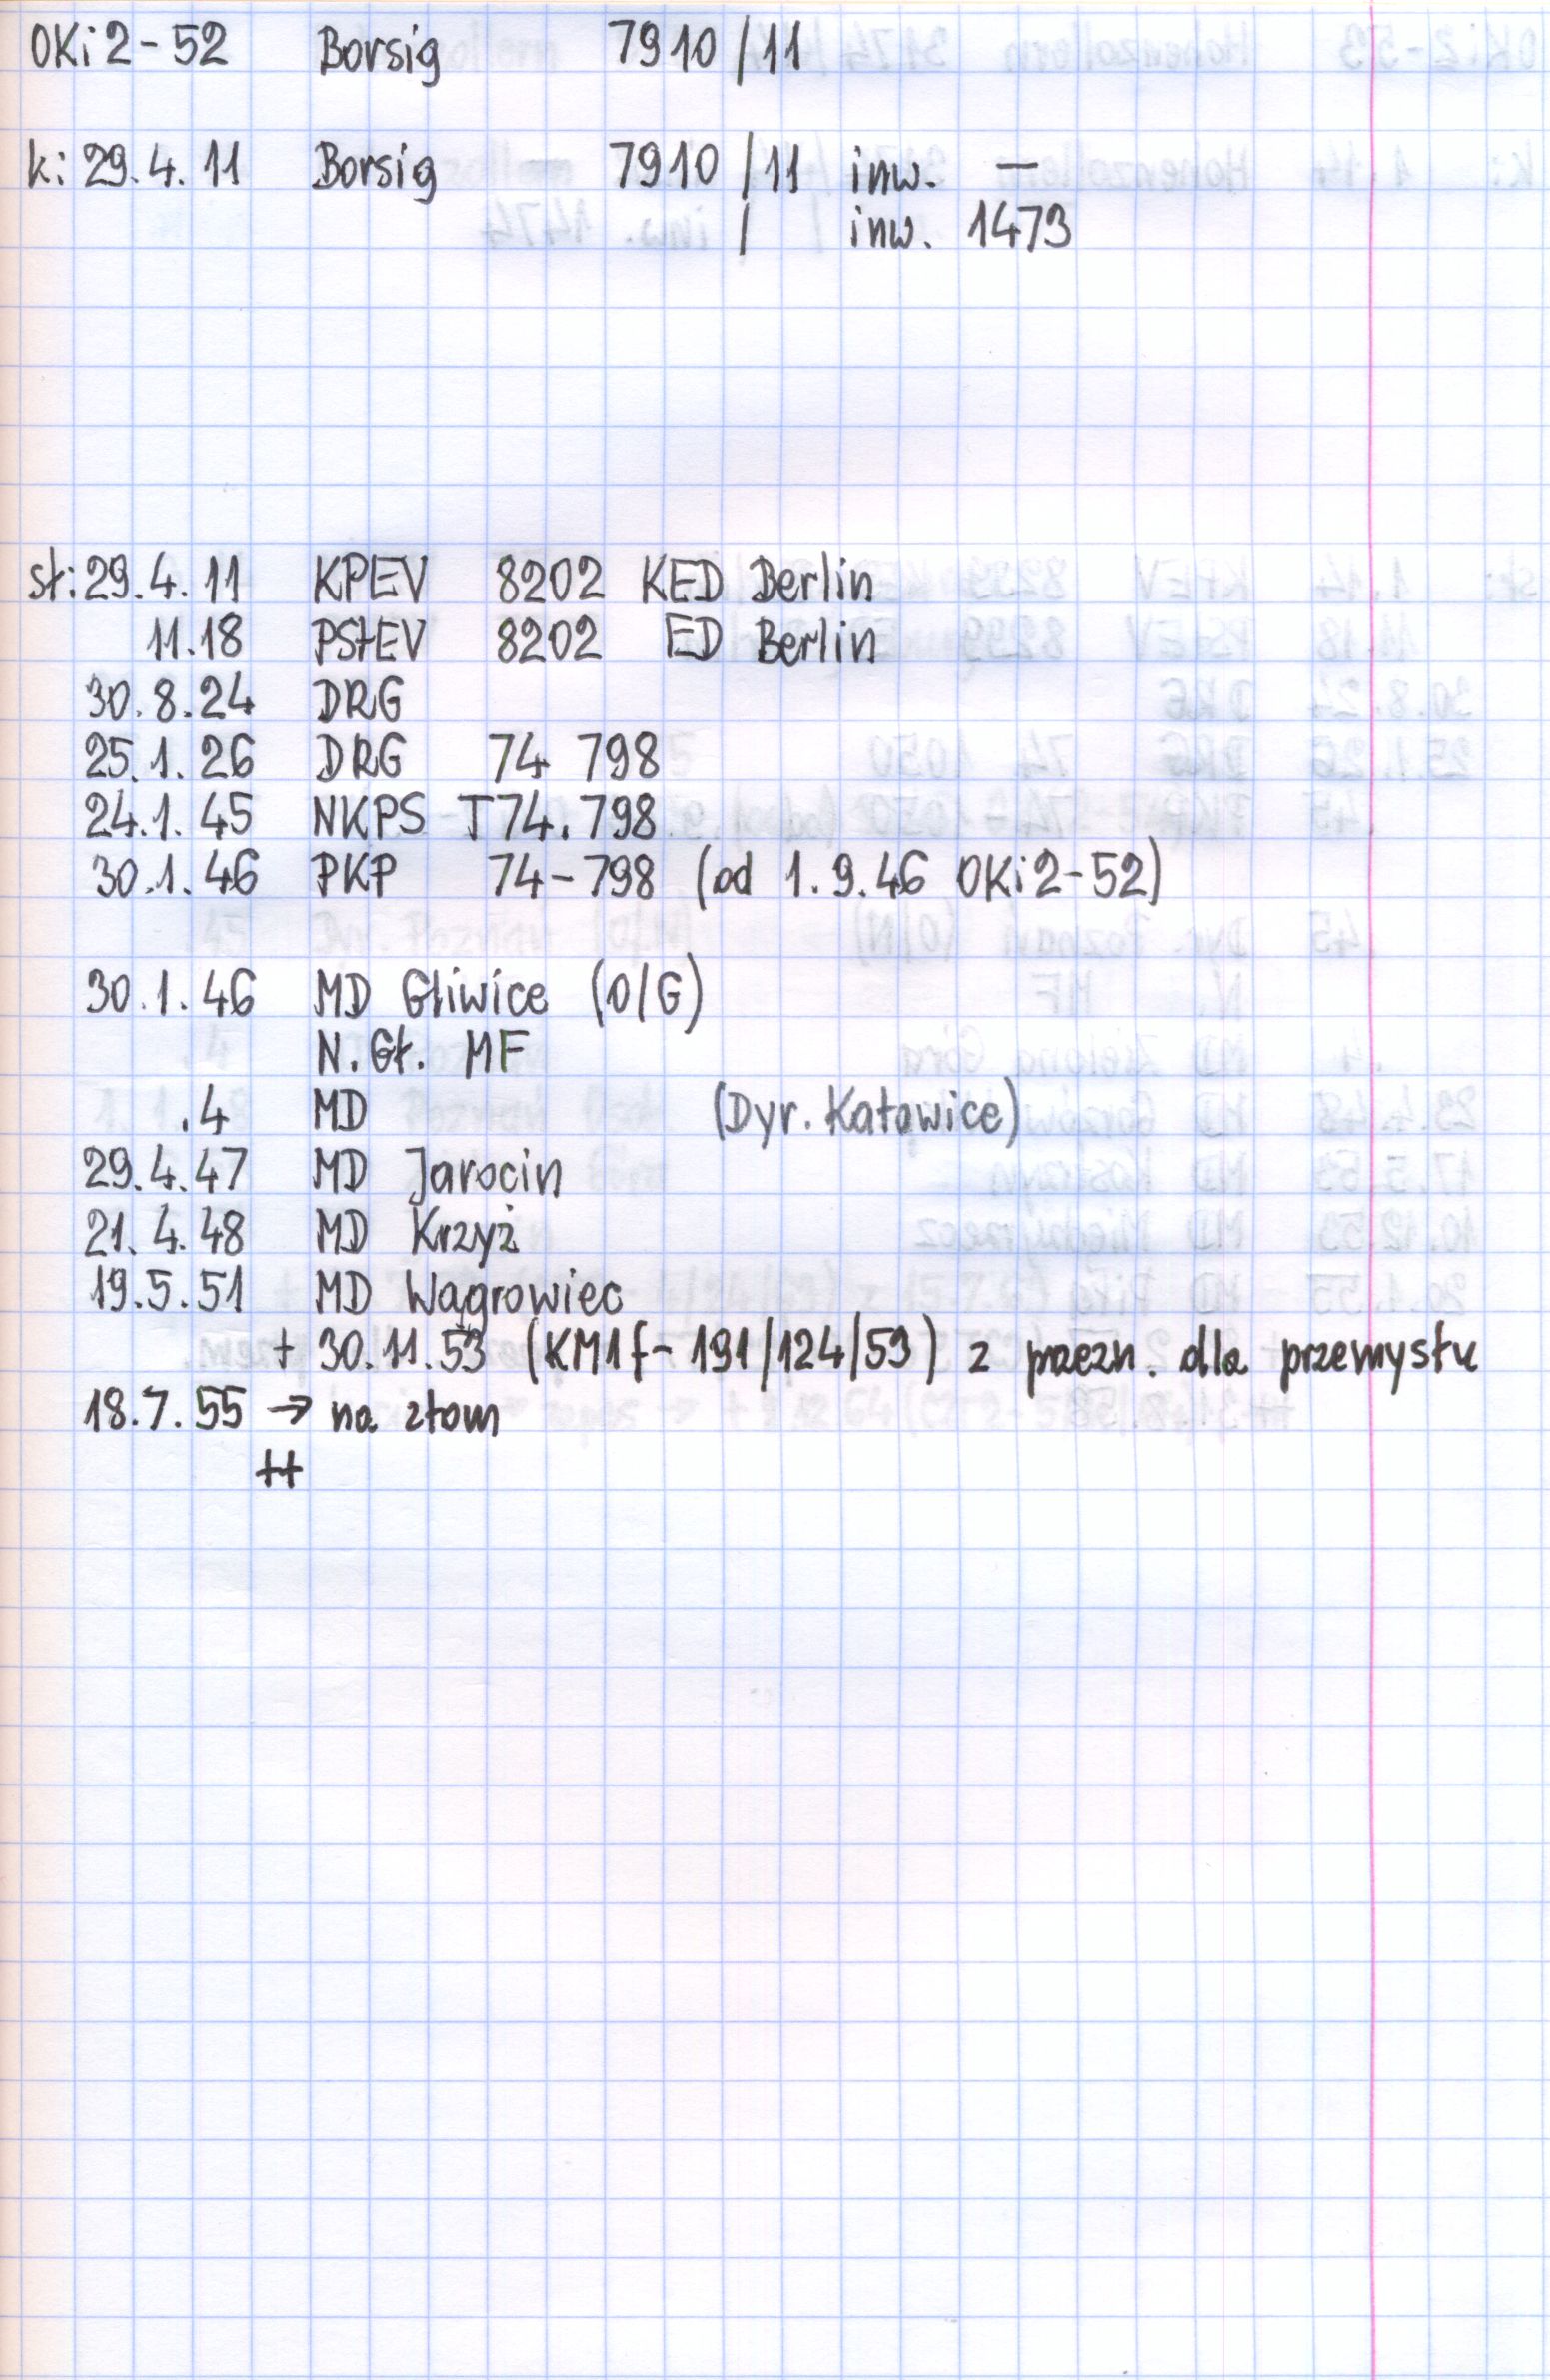 OKi2-52 Borsig 7910/11
k: 29.4.11 Borsig 7910/11 inw. —
/ inw. 1473
st: 29.4.11 KPEV 8202 KED Berlin
11.18 PStEV 8202 ED Berlin
30.8.24 DRG
25.1.26 DRG 74 798
24.1.45 NKPS T74.798
30.1.46 PKP 74-798 (od 1.9.46 OKi2-52)
30.1.46 MD Gliwice (O/G)
N.Gł. MF
.4 MD (Dyr. Katowice)
29.4.47 MD Jarocin
21.4.48 MD Krzyż
19.5.51 MD Wągrowiec
+ 30.11.53 (KM1f-191/124/53) z przezn. dla przemysłu
18.7.55 → na złom
++